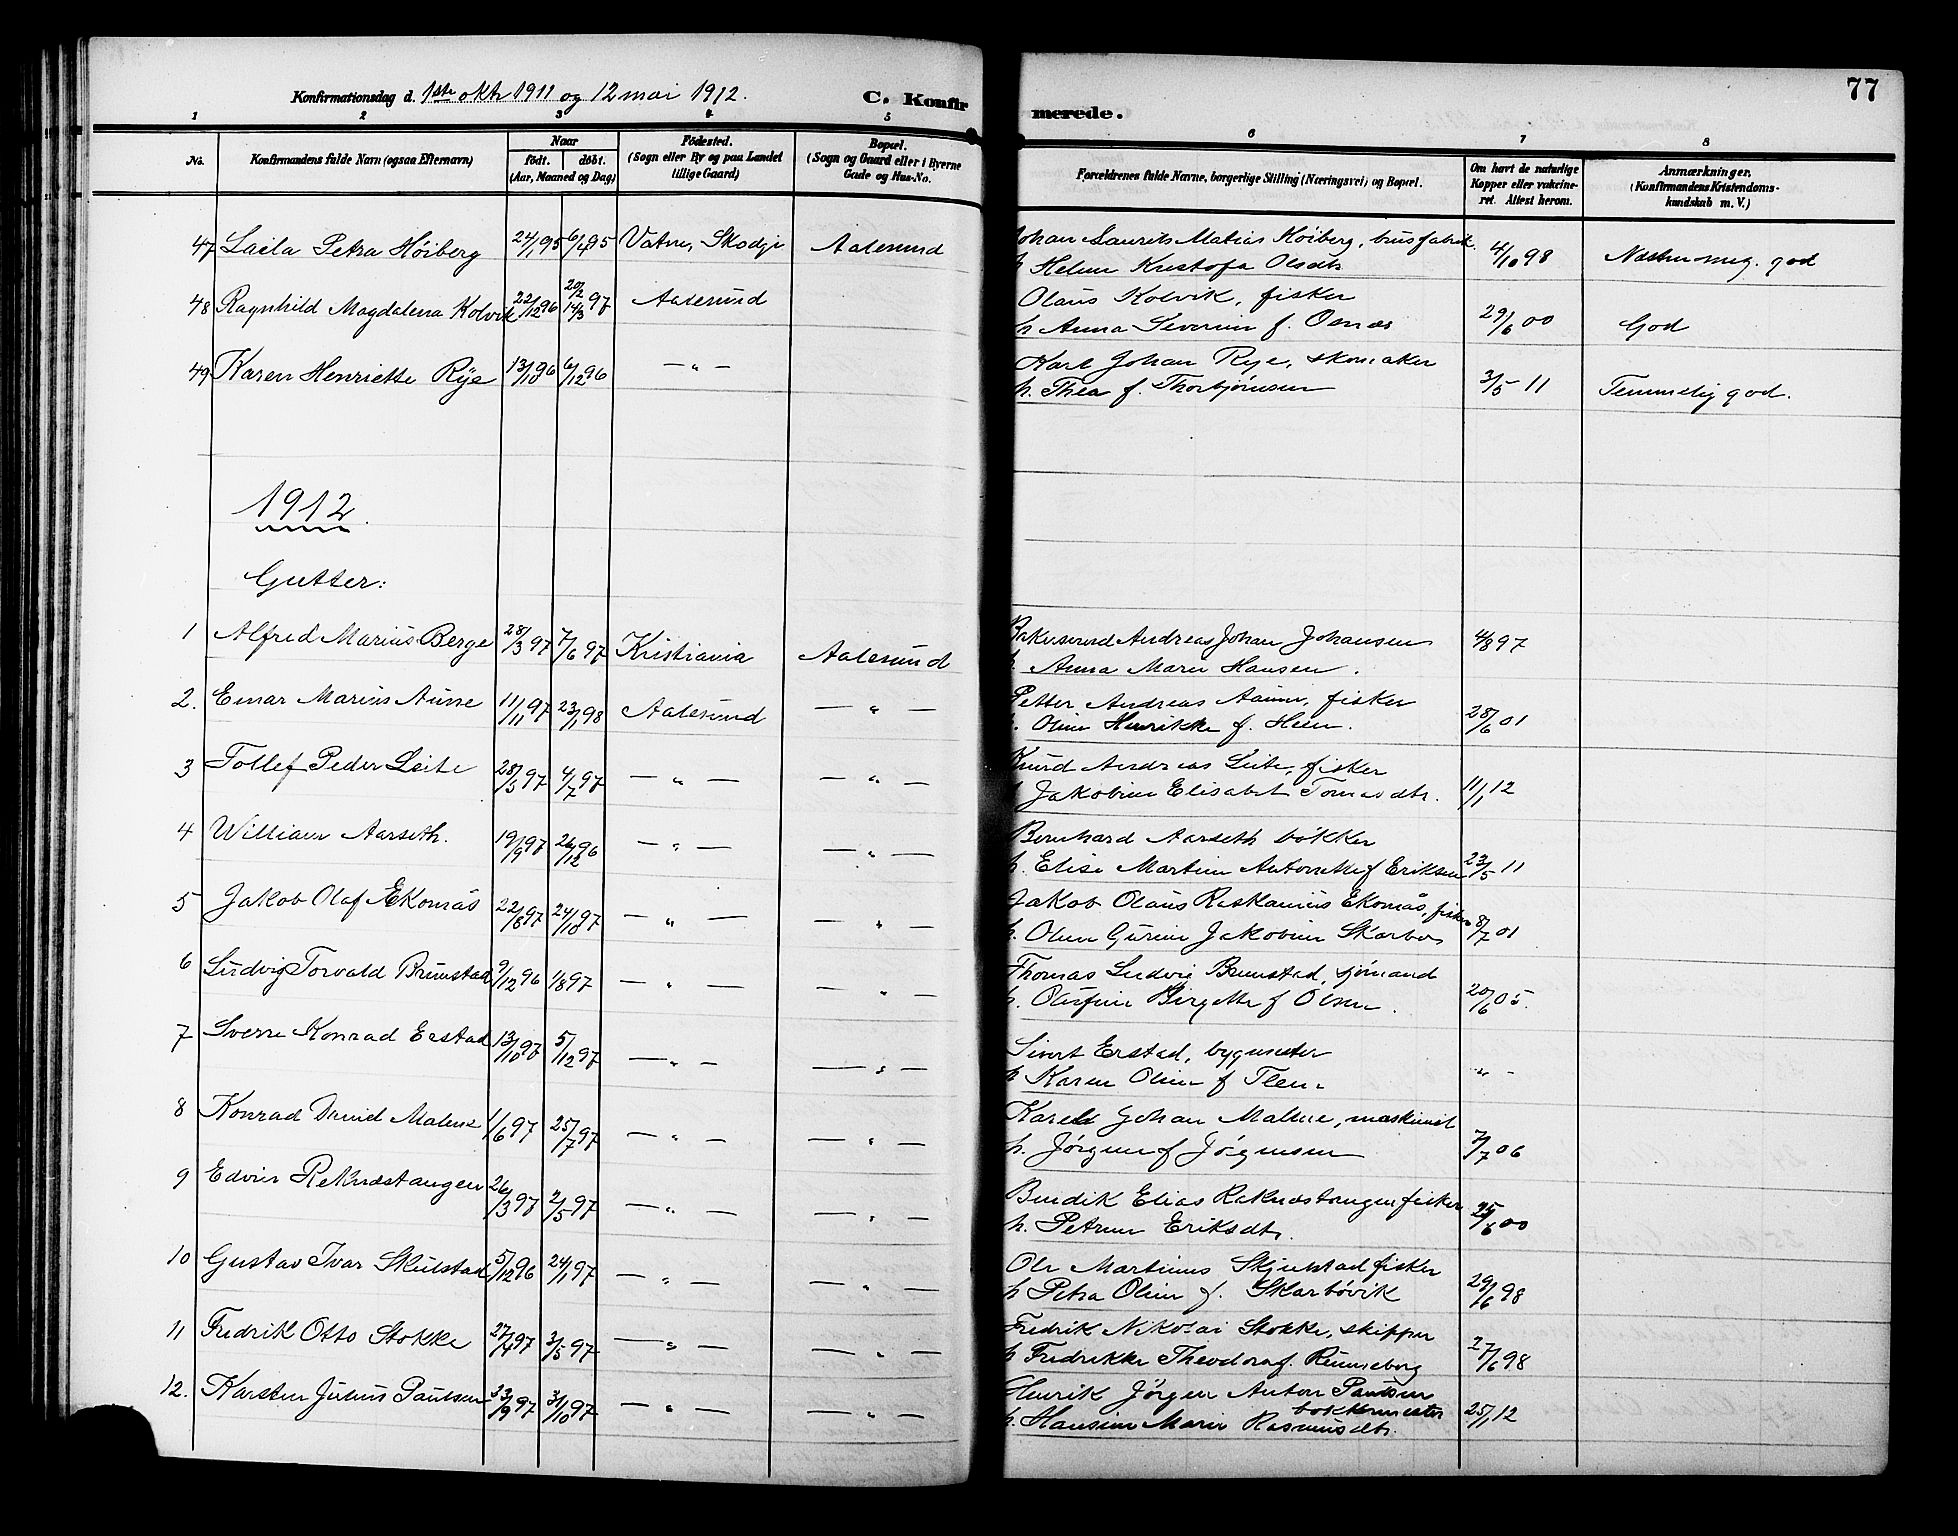 77
Konfirmationsdag d. 1ste okt 1911 og 12 mai 1912.
C. Konfirmerede.
1 2 3 4 5 6 7 8
No. Konfirmandens fulde Navn (ogsaa Efternavn) Naar født. døbt. (Aar, Maaned og Dag) Fødested. (Sogn eller By og paa Landet tillige Gaard) Bopæl. (Sogn og Gaard eller i Byerne Gade og Hus-No. Forældrenes fulde Navne, borgerlige Stilling (Næringsvei) og Bopæl. Om havt de naturlige Kopper eller vakcineret. Attest herom. Anmærkninger. (Konfirmandens Kristendomskundskab m. V.)
47 Laila Petra Høiberg 24/1 95 6/4 95 Vatne, Skodje Aalesund Johan Laurits Matias Høiberg, brusfabrik. 4/10 98 Næsten meg. god
h Helene Kristofa Olsdtr
48 Ragnhild Magdalena Kolvik 22/12 96 20/2 14/3 97 Aalesund Olaus Kolvik, fisker 29/6 00 God
h Anna Severine f. Osnes
49 Karen Henriette Rye 13/10 96 6/12 96 — " — Karl Johan Rye, skomaker 3/5 11 Temmelig god.
h. Thea f. Thorbjørnsen
1912.
Gutter:
1 Alfred Marius Berge 28/3 97 7/6 97 Kristiania Aalesund Bakersvend Andreas Johan Johansen 4/8 97
h. Anna Marie Hansen.
2. Einar Marius Aune 11/11 97 23/1 98 Aalesund — " — Petter Andreas Aaune, fisker 28/6 01
h. Oline Henrikke f. Heen.
3 Tollef Peder Leite 28/5 97 4/7 97 — " — — " — Knud Andreas Leite, fisker 11/1 12
h Jakobine Elisabet Tomasdtr.
4 William Aarseth. 19/9 97 26/12 96 — " — — " — Bernhard Aarseth bøkker 23/5 11
h. Elise Martine Antonette f Eriksen
5 Jakob Olaf Ekornås 22/8 97 24/10 97 — " — — " — Jakob Olaus Raskanius Ekornås, fisker 8/7 01
h. Olene Gurine Jakobine Skarbøs
6 Ludvig Torvald Brunstad 9/12 96 1/8 97 — " — — " — Thomas Ludvig Brunstad, sjømand 20/6 05.
h. Olufine Birgette f Olsen.
7 Sverre Konrad Erstad 13/10 97 5/12 97 — " — — " — Sivert Erstad, bygmester " -
h Karen Oline f Flem
8 Konrad David Malene 1/6 97 25/7 97 — " — — " — Karel Johan Malene, maskinist 7/7 06
h. Jørgine f Jørgensen
9 Edvin Reknestangen 26/3 97 2/5 97 — " — — " — Bendik Elias Raknestangen fisker 25/6 00
h. Petrine Eriksdtr.
10 Gustav Ivar Skulstad 5/12 96 24/1 97 — " — — " — Ole Martinus Skjulstad fisker 29/6 98
h Petra Oline f. Skarbøvik
11 Fredrik Otto Stokke 27/4 97 3/5 97 — " — — " — Fredrik Nikolai Stokke, skipper 27/6 98
h Fredrikke Theodora f. Rønneberg
12. Karsten Julius Paulsen 23/9 97 31/10 97 — " — — " — Henrik Jørgen Anton Paulsen bøkkermester 25/1 12
h. Hansine Marie Rasmusdtr.